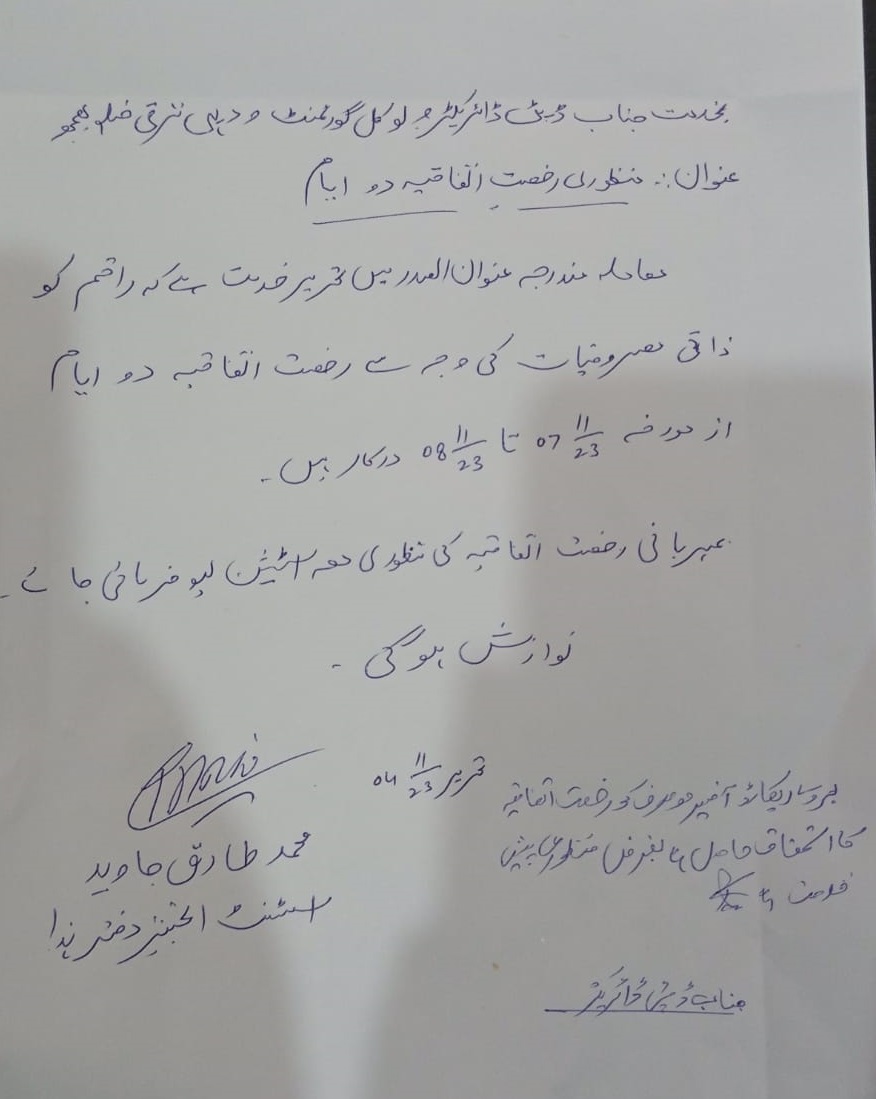 بخدمت جناب ڈپٹی ڈائریکٹر لوکل گورنمنٹ و دیہی ترقی ضلع بھمبر
عنوان :. منظوری رخصت اتفاقیہ دو ایام
معاملہ مندرجہ عنوان الصدر میں تحریر خدمت ہے کہ راقم کو
ذاتی مصروفیات کی وجہ سے رخصت اتفاقیہ دو ایام
از مورخہ 07 11/23 تا 08 11/23 درکار ہیں۔
مہربانی رخصت اتفاقیہ کی منظوری معہ اسٹیشن لیو فرمائی جائے۔
نوازش ہو گی۔
تحریر 04 11/23
محمد طارق جاوید
اسسٹنٹ انجینئر دفتر ہذا
بروئے ریکارڈ آفیسر موصوف کو رخصت اتفاقیہ
کا استحقاق حاصل ہے بغرض منظوری پیش
خدمت ہے
جناب ڈپٹی ڈائریکٹر